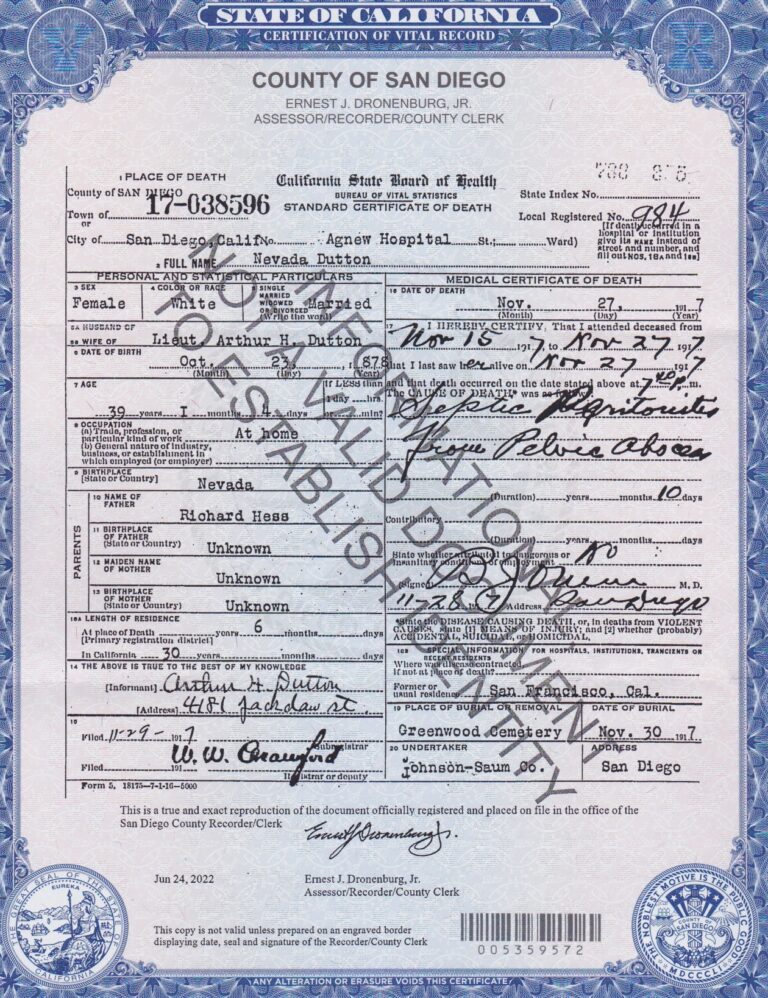 STATE OF CALIFORNIA
CERTIFICATION OF VITAL RECORD
COUNTY OF SAN DIEGO
ERNEST J. DRONENBURG, JR.
ASSESSOR/RECORDER/COUNTY CLERK
1 PLACE OF DEATH
County of SAN DIEGO
17-038596
Town of
or
City of San Diego, Calif No. Agnew Hospital St.; Ward)
2 FULL NAME Nevada Dutton
California State Board of Health
BUREAU OF VITAL STATISTICS
STANDARD CERTIFICATE OF DEATH
State Index No.
Local Registered No. 984
[If death occurred in a
hospital or institution
give its NAME instead of
street and number, and
fill out NOS. 18A and 18B]
PERSONAL AND STATISTICAL PARTICULARS
3 SEX
Female
4 COLOR OR RACE
White
5 SINGLE
MARRIED
WIDOWED
OR DIVORCED
(Write the word)
Married
5A HUSBAND OF
5B WIFE OF Lieut. Arthur H. Dutton
6 DATE OF BIRTH
Oct. 23, 1878
(Month) (Day) (Year)
7 AGE
39 years I months 4 days
If LESS than
1 day hrs.
min?
8 OCCUPATION
(a) Trade, profession, or
particular kind of work At home
(b) General nature of industry,
business, or establishment in
which employed (or employer)
9 BIRTHPLACE
(State or Country)
Nevada
PARENTS
10 NAME OF
FATHER
Richard Hess
11 BIRTHPLACE
OF FATHER
(State or Country) Unknown
12 MAIDEN NAME
OF MOTHER
Unknown
13 BIRTHPLACE
OF MOTHER
(State or Country) Unknown
18A LENGTH OF RESIDENCE
At place of Death years 6 months days
[Primary registration district]
In California 30 years months days
14 THE ABOVE IS TRUE TO THE BEST OF MY KNOWLEDGE
[Informant] Arthur H. Dutton
[Address] 4181 Jackdaw st.
15
Filed 11-29- 1917
Subregistrar
W. W. Crawford
Filed 191
Registrar or deputy
Form 5. 18175—7-1-16—5000
MEDICAL CERTIFICATE OF DEATH
16 DATE OF DEATH
Nov. 27, 1917
(Month) (Day) (Year)
17 I HEREBY CERTIFY, That I attended deceased from
Nov 15 1917, to Nov 27 1917
that I last saw her alive on Nov 27 1917
and that death occurred on the date stated above at 7 m.
The CAUSE OF DEATH was as follows:
Skeptic Peritonitis
from Pelvic Abscess
(Duration) years months 10 days
Contributory
(Duration) years months days
State whether attributed to dangerous or
insanitary conditions of employment No
(Signed) M. D.
11-28 17 Address San Diego
State the DISEASE CAUSING DEATH, or, in deaths from VIOLENT
CAUSES, state [1] MEANS OF INJURY; and [2] whether (probably)
ACCIDENTAL, SUICIDAL, or HOMICIDAL,
18B SPECIAL INFORMATION FOR HOSPITALS, INSTITUTIONS, TRANCIENTS OR
RECENT RESIDENTS
Where was disease contracted,
if not at place of death?
Former or
usual residence San Francisco, Cal.
19 PLACE OF BURIAL OR REMOVAL
Greenwood Cemetery
DATE OF BURIAL
Nov. 30 1917
20 UNDERTAKER
Johnson-Saum Co.
ADDRESS
San Diego
INFORMATIONAL
NOT A VALID DOCUMENT
TO ESTABLISH IDENTITY
This is a true and exact reproduction of the document officially registered and placed on file in the office of the
San Diego County Recorder/Clerk
Ernest J Dronenburg Jr.
Jun 24, 2022
Ernest J. Dronenburg, Jr.
Assessor/Recorder/County Clerk
This copy is not valid unless prepared on an engraved border
displaying date, seal and signature of the Recorder/County Clerk
005359572
THE GREAT SEAL OF THE STATE OF CALIFORNIA
EUREKA
THE NOBLEST MOTIVE IS THE PUBLIC GOOD
COUNTY OF SAN DIEGO
MDCCCLII
ANY ALTERATION OR ERASURE VOIDS THIS CERTIFICATE